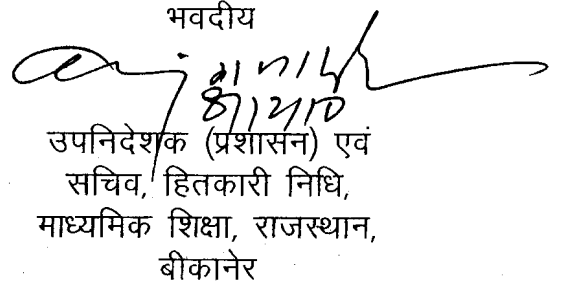 भवदीय
8/12/10
उपनिदेशक (प्रशासन) एवं
सचिव, हितकारी निधि,
माध्यमिक शिक्षा, राजस्थान,
बीकानेर